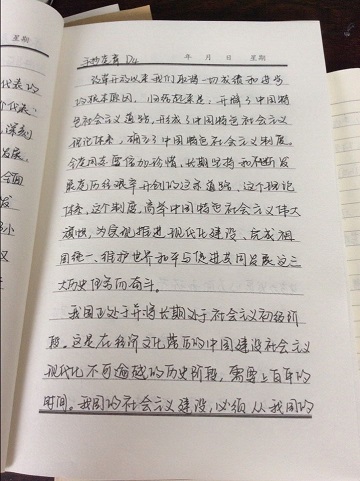 星期
年 月 日 星期
手抄党章 D4
改革开放以来我们取得一切成绩和进步
的根本原因，归结起来是：开辟了中国特
色社会主义道路，形成了中国特色社会主义
理论体系，确立了中国特色社会主义制度。
全党同志要倍加珍惜、长期坚持和不断发
展党历经艰辛开创的这条道路、这个理论
体系、这个制度，高举中国特色社会主义伟大
旗帜，为实现推进现代化建设、完成祖
国统一、维护世界和平与促进共同发展这三
大历史任务而奋斗。
我国正处于并将长期处于社会主义初级阶
段。这是在经济文化落后的中国建设社会主义
现代化不可逾越的历史阶段，需要上百年的
时间。我国的社会主义建设，必须从我国的